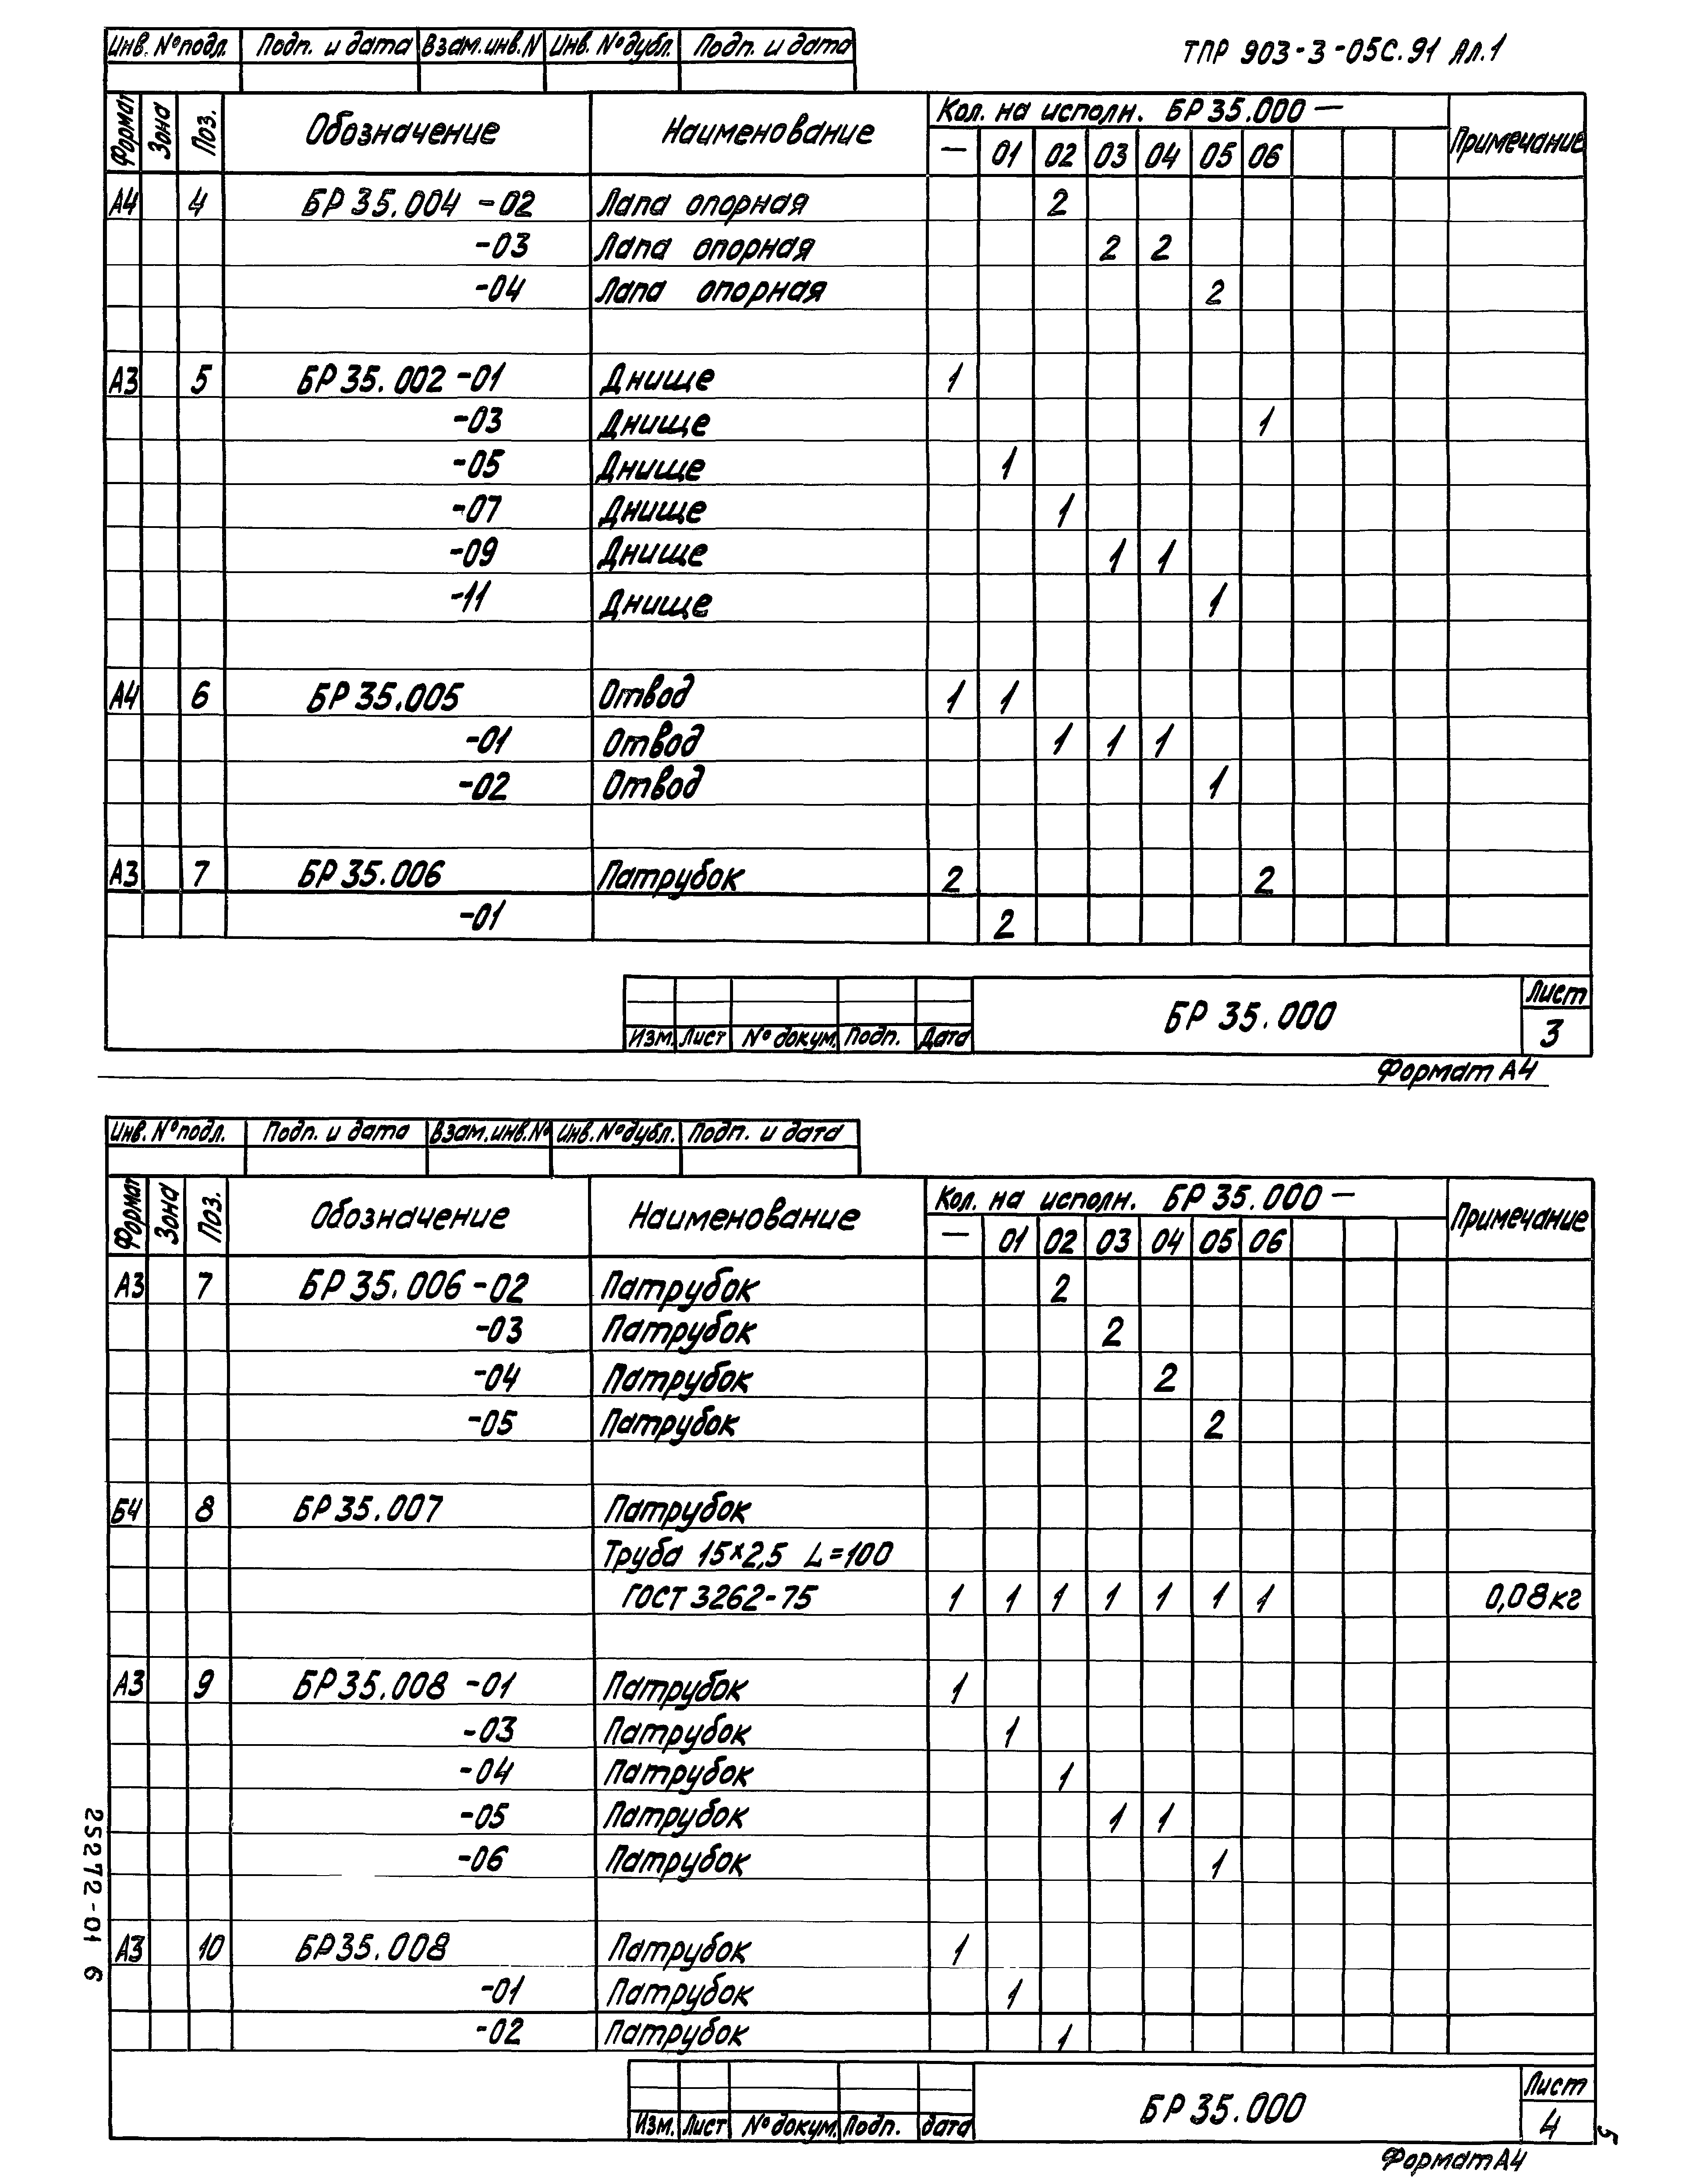 ТПР 903-3-05С.91 Ал.1
Инв. № подл. Подп. и дата Взам. инв. N Инв. № дубл. Подп. и дата
Формат Зона Поз. Обозначение Наименование Кол. на исполн. БР 35.000 — Примечание
— 01 02 03 04 05 06
А4 4 БР 35.004 -02 Лапа опорная 2
-03 Лапа опорная 2 2
-04 Лапа опорная 2
А3 5 БР 35.002 -01 Днище 1
-03 Днище 1
-05 Днище 1
-07 Днище 1
-09 Днище 1 1
-11 Днище 1
А4 6 БР 35.005 Отвод 1 1
-01 Отвод 1 1 1
-02 Отвод 1
А3 7 БР 35.006 Патрубок 2 2
-01 2
Изм. Лист № докум. Подп. Дата БР 35.000 Лист 3
Формат А4
Инв. № подл. Подп. и дата Взам. инв. № Инв. № дубл. Подп. и дата
Формат Зона Поз. Обозначение Наименование Кол. на исполн. БР 35.000 — Примечание
— 01 02 03 04 05 06
А3 7 БР 35.006 -02 Патрубок 2
-03 Патрубок 2
-04 Патрубок 2
-05 Патрубок 2
Б4 8 БР 35.007 Патрубок
Труба 15×2,5 L=100
ГОСТ 3262-75 1 1 1 1 1 1 1 0,08 кг
А3 9 БР 35.008 -01 Патрубок 1
-03 Патрубок 1
-04 Патрубок 1
-05 Патрубок 1 1
-06 Патрубок 1
А3 10 БР 35.008 Патрубок 1
-01 Патрубок 1
-02 Патрубок 1
Изм. Лист № докум. Подп. дата БР 35.000 Лист 4
Формат А4
25272-01 6
5